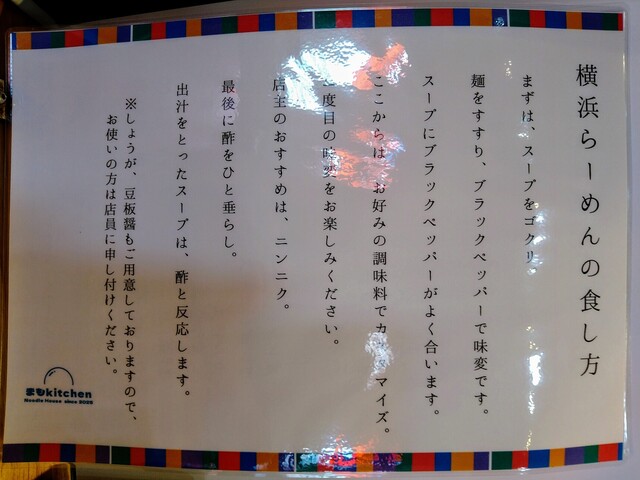 横浜らーめんの食し方
まずは、スープをゴクリ。
麺をすすり、ブラックペッパーで味変です。
スープにブラックペッパーがよく合います。
ここからは お好みの調味料でカスタマイズ。
度目の味変をお楽しみください。
店主のおすすめは、ニンニク。
最後に酢をひと垂らし。
出汁をとったスープは、酢と反応します。
※しょうが、豆板醤もご用意しておりますので、
お使いの方は店員に申し付けください。
まもkitchen
Noodle House since 2025